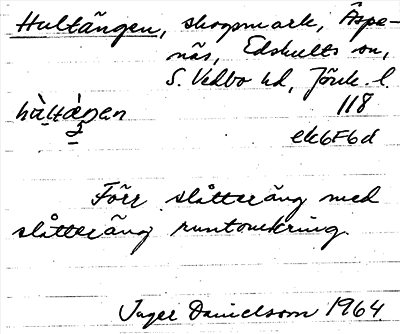 Hultängen, skogsmark, Äspe-
näs, Edshults sn,
S. Vedbo hd, Jönk. l.
hùltæ̀ŋen 118
ek6F6d
Förr slåtteräng med
slåtteräng runtomkring.
Inger Danielsson 1964